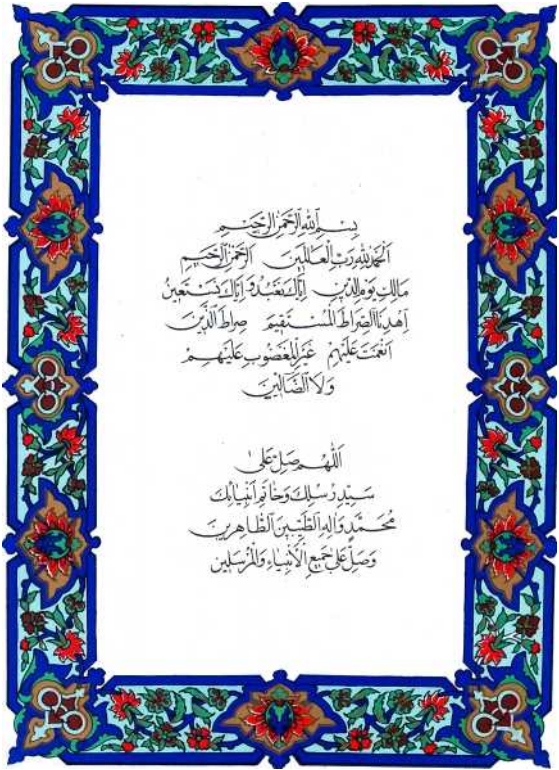 بِسْمِ اللهِ الرَّحْمٰنِ الرَّحِيمِ
اَلْحَمْدُ لِلّٰهِ رَبِّ الْعَالَمِينَ الرَّحْمٰنِ الرَّحِيمِ
مَالِكِ يَوْمِ الدِّينِ إِيَّاكَ نَعْبُدُ وَإِيَّاكَ نَسْتَعِينُ
اِهْدِنَا الصِّرَاطَ الْمُسْتَقِيمَ صِرَاطَ الَّذِينَ
اَنْعَمْتَ عَلَيْهِمْ غَيْرِ الْمَغْضُوبِ عَلَيْهِمْ
وَلَا الضَّالِّينَ
اَللّٰهُمَّ صَلِّ عَلٰى
سَيِّدِ رُسُلِكَ وَخَاتَمِ اَنْبِيَائِكَ
مُحَمَّدٍ وَآلِهِ الطَّيِّبِينَ الطَّاهِرِينَ
وَصَلِّ عَلٰى جَمِيعِ الْأَنْبِيَاءِ وَالْمُرْسَلِينَ